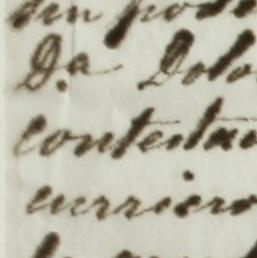 sin pode
D.a Dolo
contestac
curriero